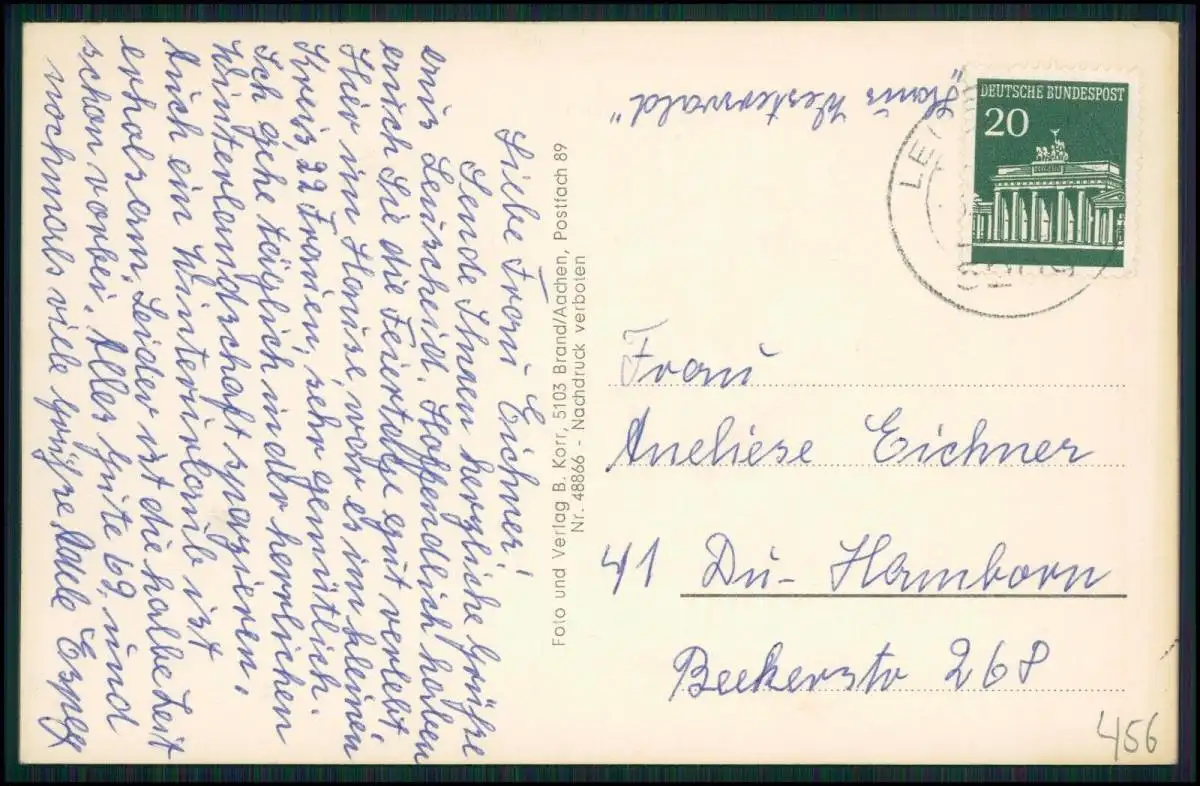 Liebe Frau Eichner!
Sende Ihnen herzliche Grüße
aus Leuscheid. Hoffendlich haben
auch Sie die Feiertage gut verlebt.
Hier im Hause, war es im kleinen
Kreis, 22 Frauen, sehr gemütlich.
Ich gehe täglich in der herrlichen
Winterlandschaft spazieren.
Auch ein Winterurlaub ist
erholsam. Leider ist die halbe Zeit
schon vorbei. Alles Gute 69, und
nochmals viele Grüße
Foto und Verlag B. Korr, 5103 Brand/Aachen, Postfach 89
Nr. 48866 - Nachdruck verboten
"Haus Westerwald"
DEUTSCHE BUNDESPOST
20
LE
Frau
Aneliese Eichner
41 Du- Hamborn
Beekerstr 268
456